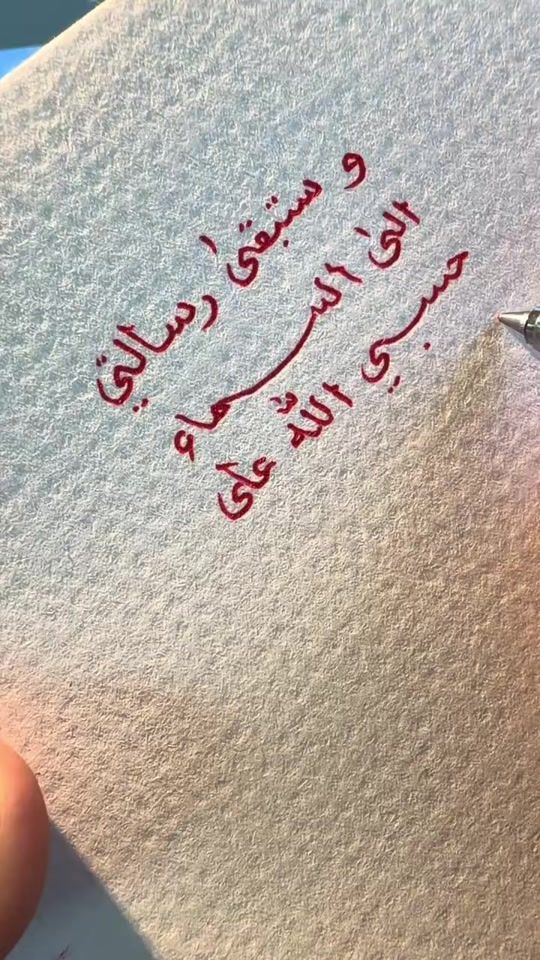 و ستبقىٰ رسالتي
الىٰ السماء
حسبي اللّٰه على